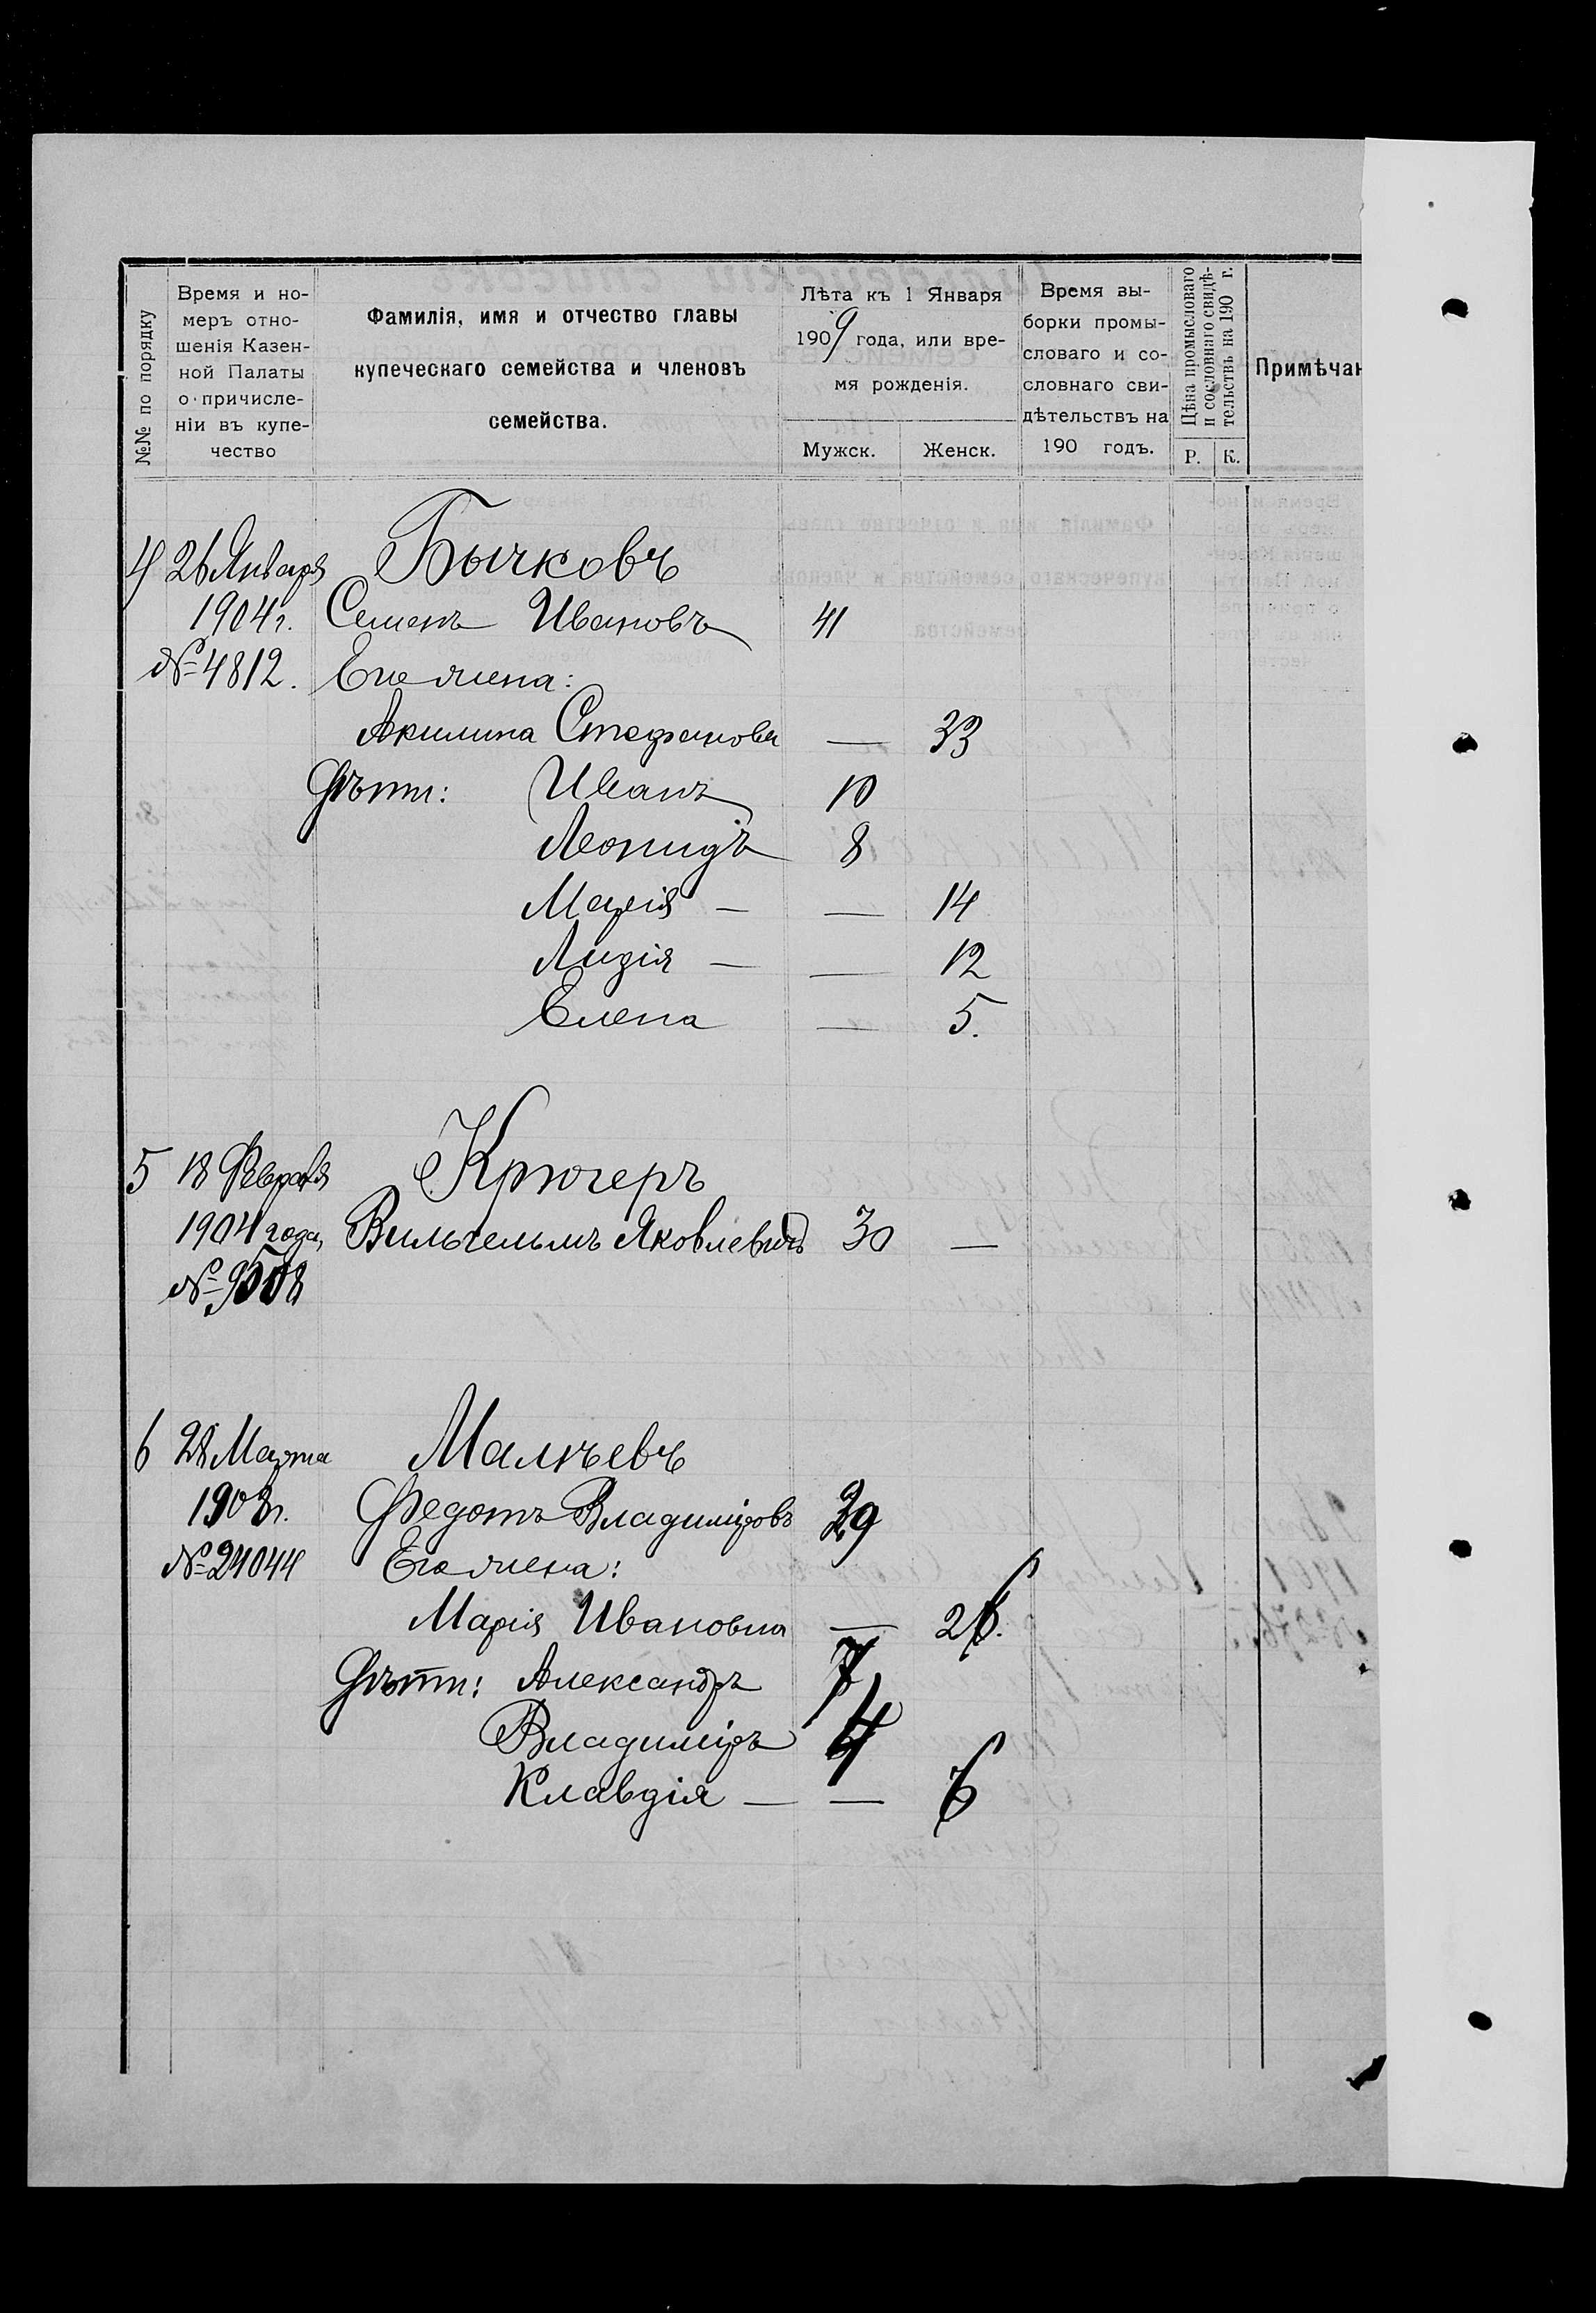 №№ по порядку
Время и но-
меръ отно-
шенія Казен-
ной Палаты
о причисле-
ніи въ купе-
чество
Фамилія, имя и отчество главы
купеческаго семейства и членовъ
семейства.
Лѣта къ 1 Января
1909 года, или вре-
мя рожденія.
Мужск. Женск.
Время вы-
борки промы-
словаго и со-
словнаго сви-
дѣтельствъ на
190 годъ.
Цѣна промысловаго
и сословнаго свидѣ-
тельствъ на 190 г.
Р. К.
Примѣчан
4 26 Января Бычковъ
1904 г. Семенъ Ивановъ 41
№ 4812. Его жена:
Акилина Стефанова — 33
Дѣти: Иванъ 10
Леонидъ 8
Марія — — 14
Лидія — — 12
Елена — 5.
5 18 Февраля Крюгеръ
1904 года, Вильгельмъ Яковлевичъ 30 —
№ 9508
6 28 Марта Малѣевъ
1908 г. Федотъ Владиміровъ 29
№ 24044 Его жена:
Марія Ивановна — 26.
Дѣти: Александръ 7
Владиміръ 4
Клавдія — — 6